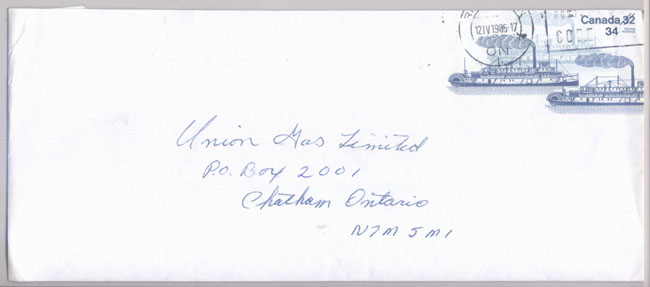 12 IV 1985-17
ON
CODE
Canada 32
34
Union Gas Limited
P.O. Box 2001
Chatham Ontario
N7M 5M1